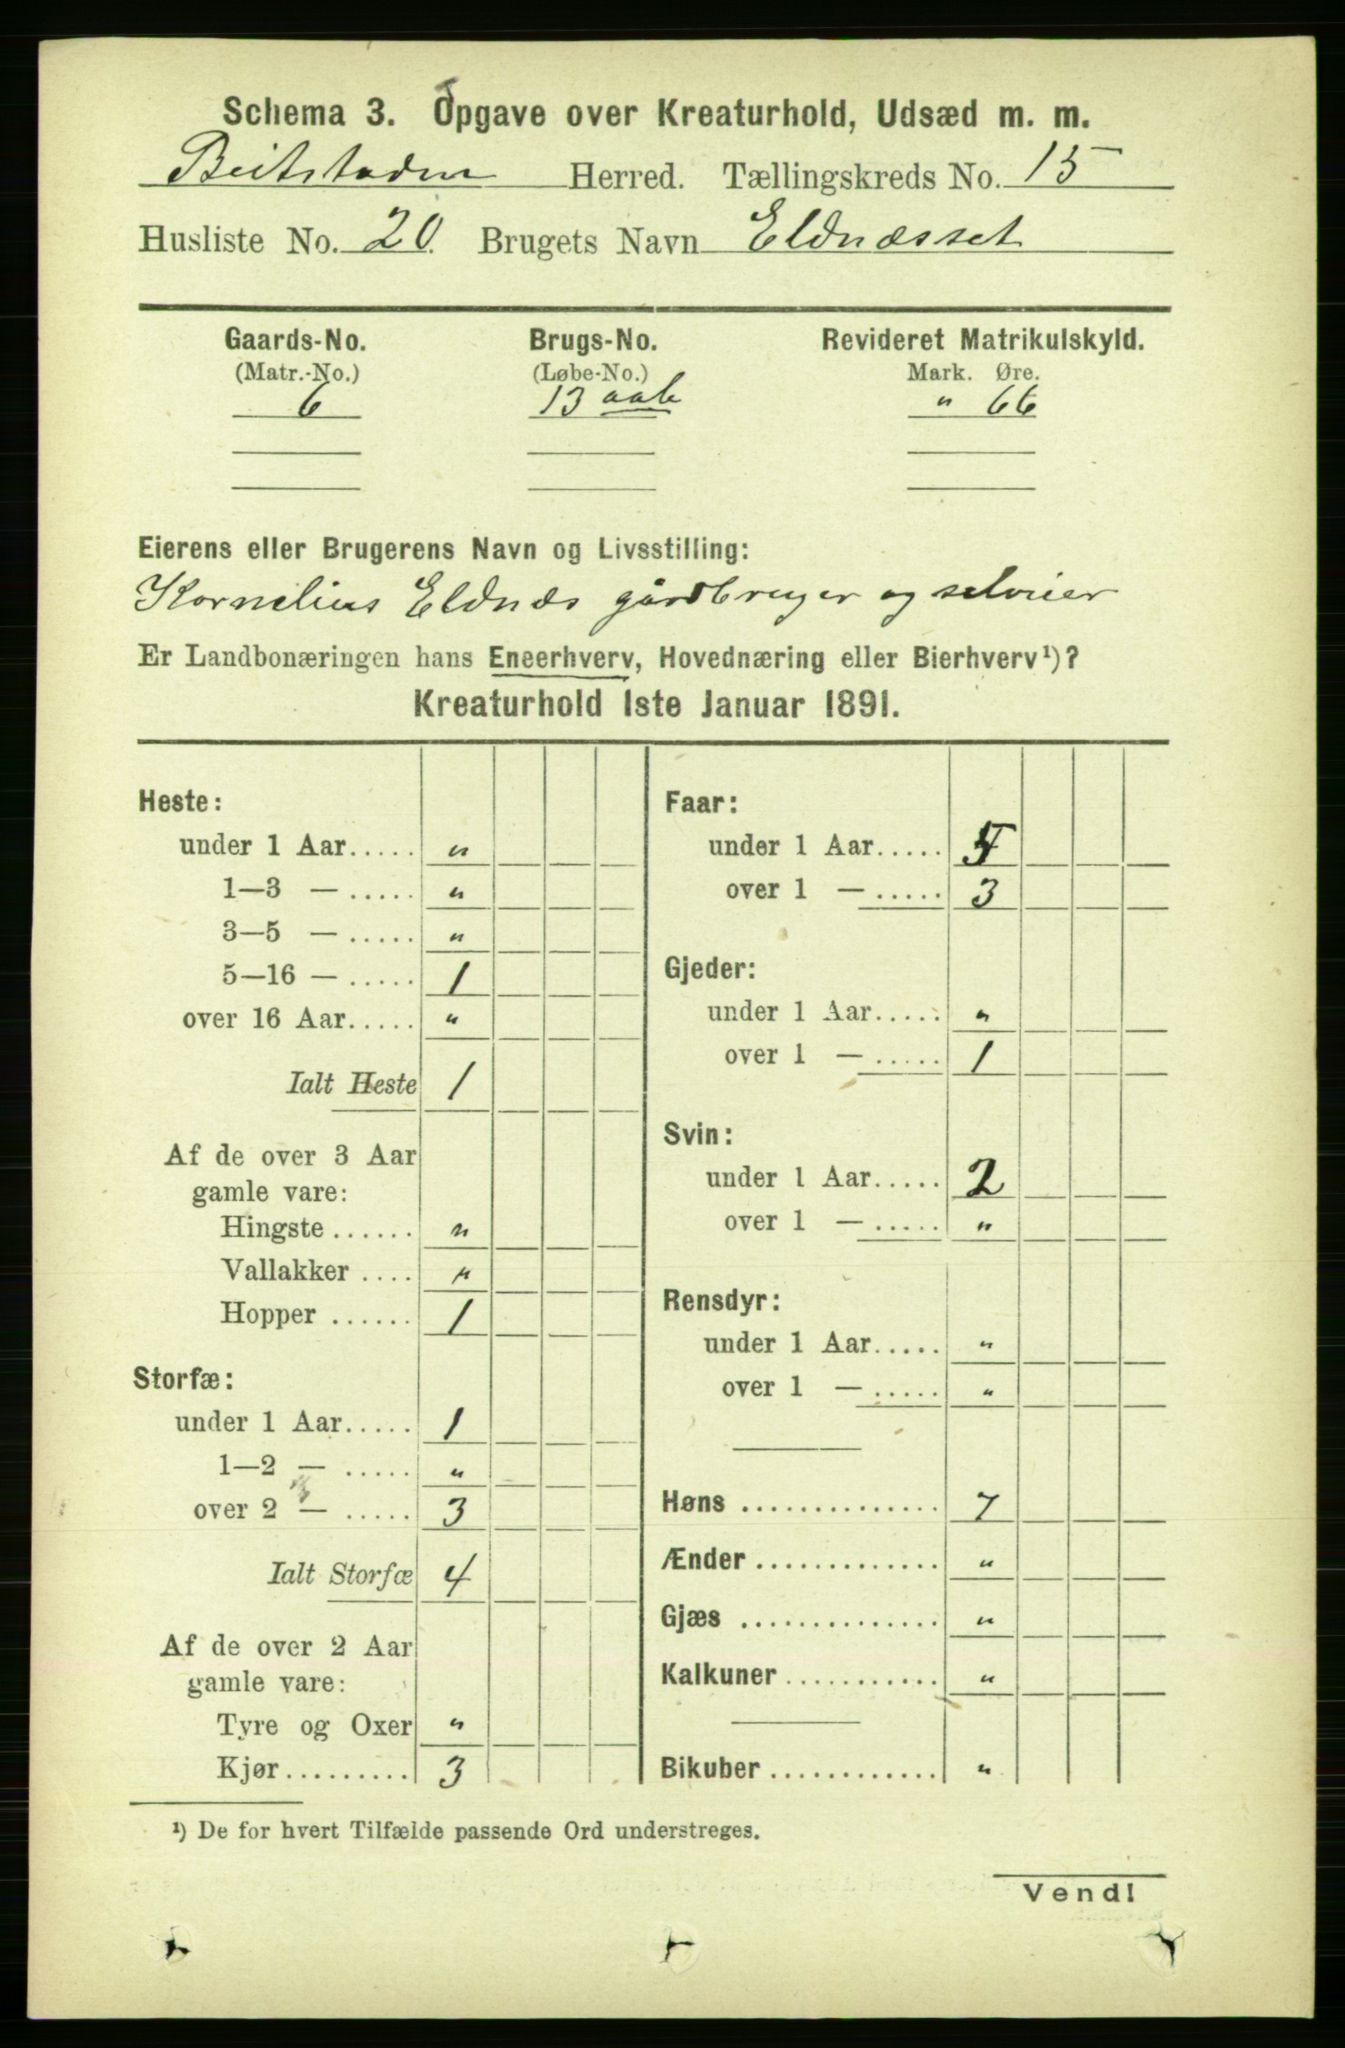 Schema 3. Opgave over Kreaturhold, Udsæd m. m.
Beitstaden Herred. Tællingskreds No. 15
Husliste No. 20. Brugets Navn Eldnæsset
Gaards-No. Brugs-No. Revideret Matrikulskyld.
(Matr.-No.) (Løbe-No.) Mark. Øre.
6 13 " 66
Eierens eller Brugerens Navn og Livsstilling:
Kornelius Eldnæs gårdbruger og selveier
Er Landbonæringen hans Eneerhverv, Hovednæring eller Bierhverv¹)?
Kreaturhold 1ste Januar 1891.
Heste:
under 1 Aar..... "
1—3 — ..... "
3—5 — ..... "
5—16 — ..... 1
over 16 Aar..... "
Ialt Heste 1
Af de over 3 Aar
gamle vare:
Hingste ...... "
Vallakker .... "
Hopper ...... 1
Storfæ:
under 1 Aar..... 1
1—2 — ..... "
over 2 — ..... 3
Ialt Storfæ 4
Af de over 2 Aar
gamle vare:
Tyre og Oxer "
Kjør......... 3
Faar:
under 1 Aar.....
over 1 — ..... 3
Gjeder:
under 1 Aar..... "
over 1 — ..... 1
Svin:
under 1 Aar..... 2
over 1 — ..... "
Rensdyr:
under 1 Aar..... "
over 1 — ..... "
Høns .............. 7
Ænder ............. "
Gjæs .............. "
Kalkuner ........... "
Bikuber ............ "
¹) De for hvert Tilfælde passende Ord understreges.
Vend!